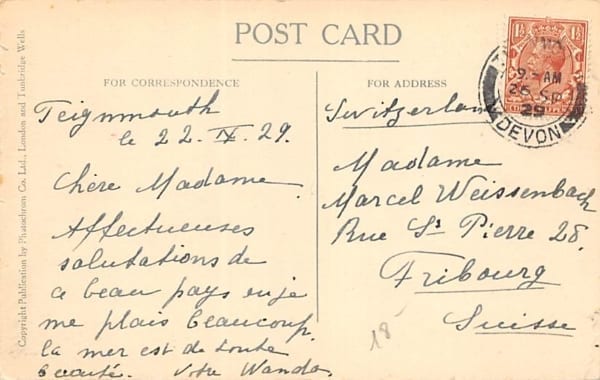 POST CARD
FOR CORRESPONDENCE
Teignmouth
le 22. IX. 29.
Chère Madame
Affectueuses
salutations de
ce beau pays ou je
me plais beaucoup.
la mer est de toute
beauté. Votre Wanda.
FOR ADDRESS
Switzerland
Madame
Marcel Weissenbach
Rue St Pierre 28.
Fribourg
Suisse
18
1½ 1½
9- AM
26 SP
29
DEVON
Copyright Publication by Photochrom Co. Ltd., London and Tunbridge Wells